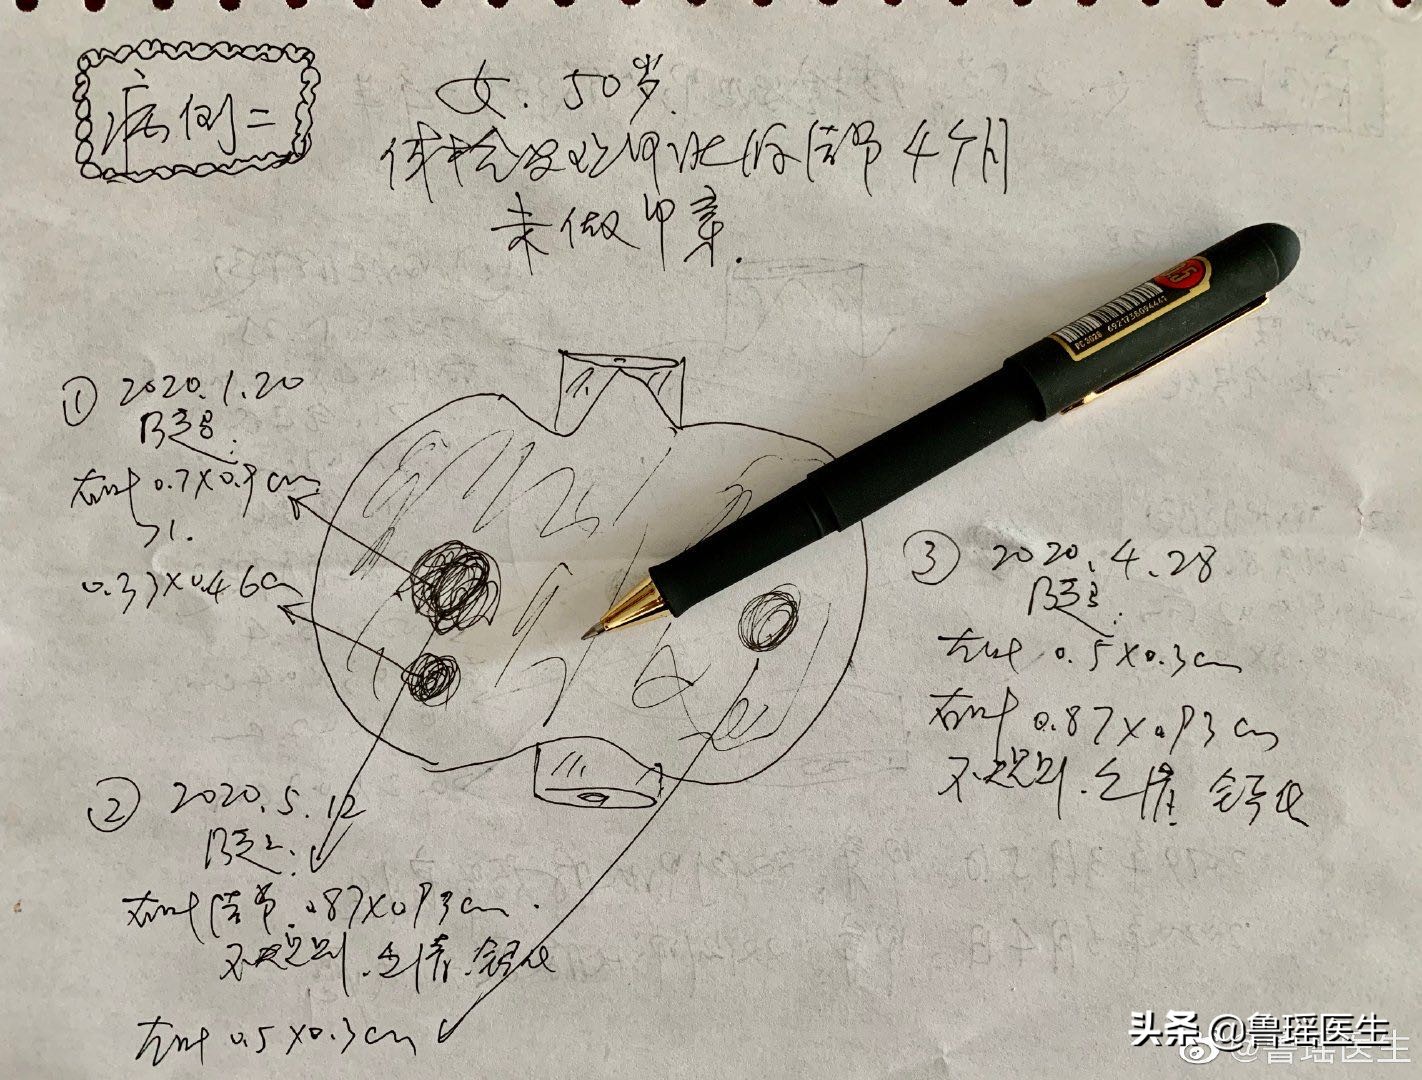 病例二
女. 50岁.
体检发现甲状腺结节 4个月
未做甲亲.
① 2020.1.20
B超:
右叶 0.7×0.9cm
0.33×0.46cm
② 2020.5.12
B超:
右叶结节 0.87×0.93cm.
不规则.之清.钙化
左叶 0.5×0.3cm
③ 2020.4.28
B超:
左叶 0.5×0.3cm
右叶 0.87×0.93cm
不规则.欠清 钙化
PC3028 6921738094467
头条 @鲁瑶医生
@鲁瑶医生